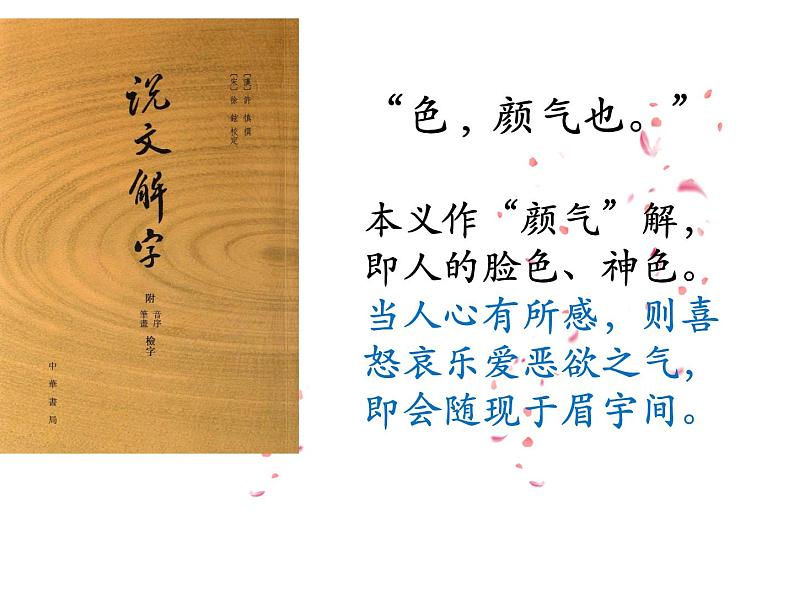 [漢] 許 慎 撰
[宋] 徐 鉉 校定
说文解字
附
音序
筆畫
檢字
中華書局
“色，颜气也。”
本义作“颜气”解，
即人的脸色、神色。
当人心有所感，则喜
怒哀乐爱恶欲之气，
即会随现于眉宇间。